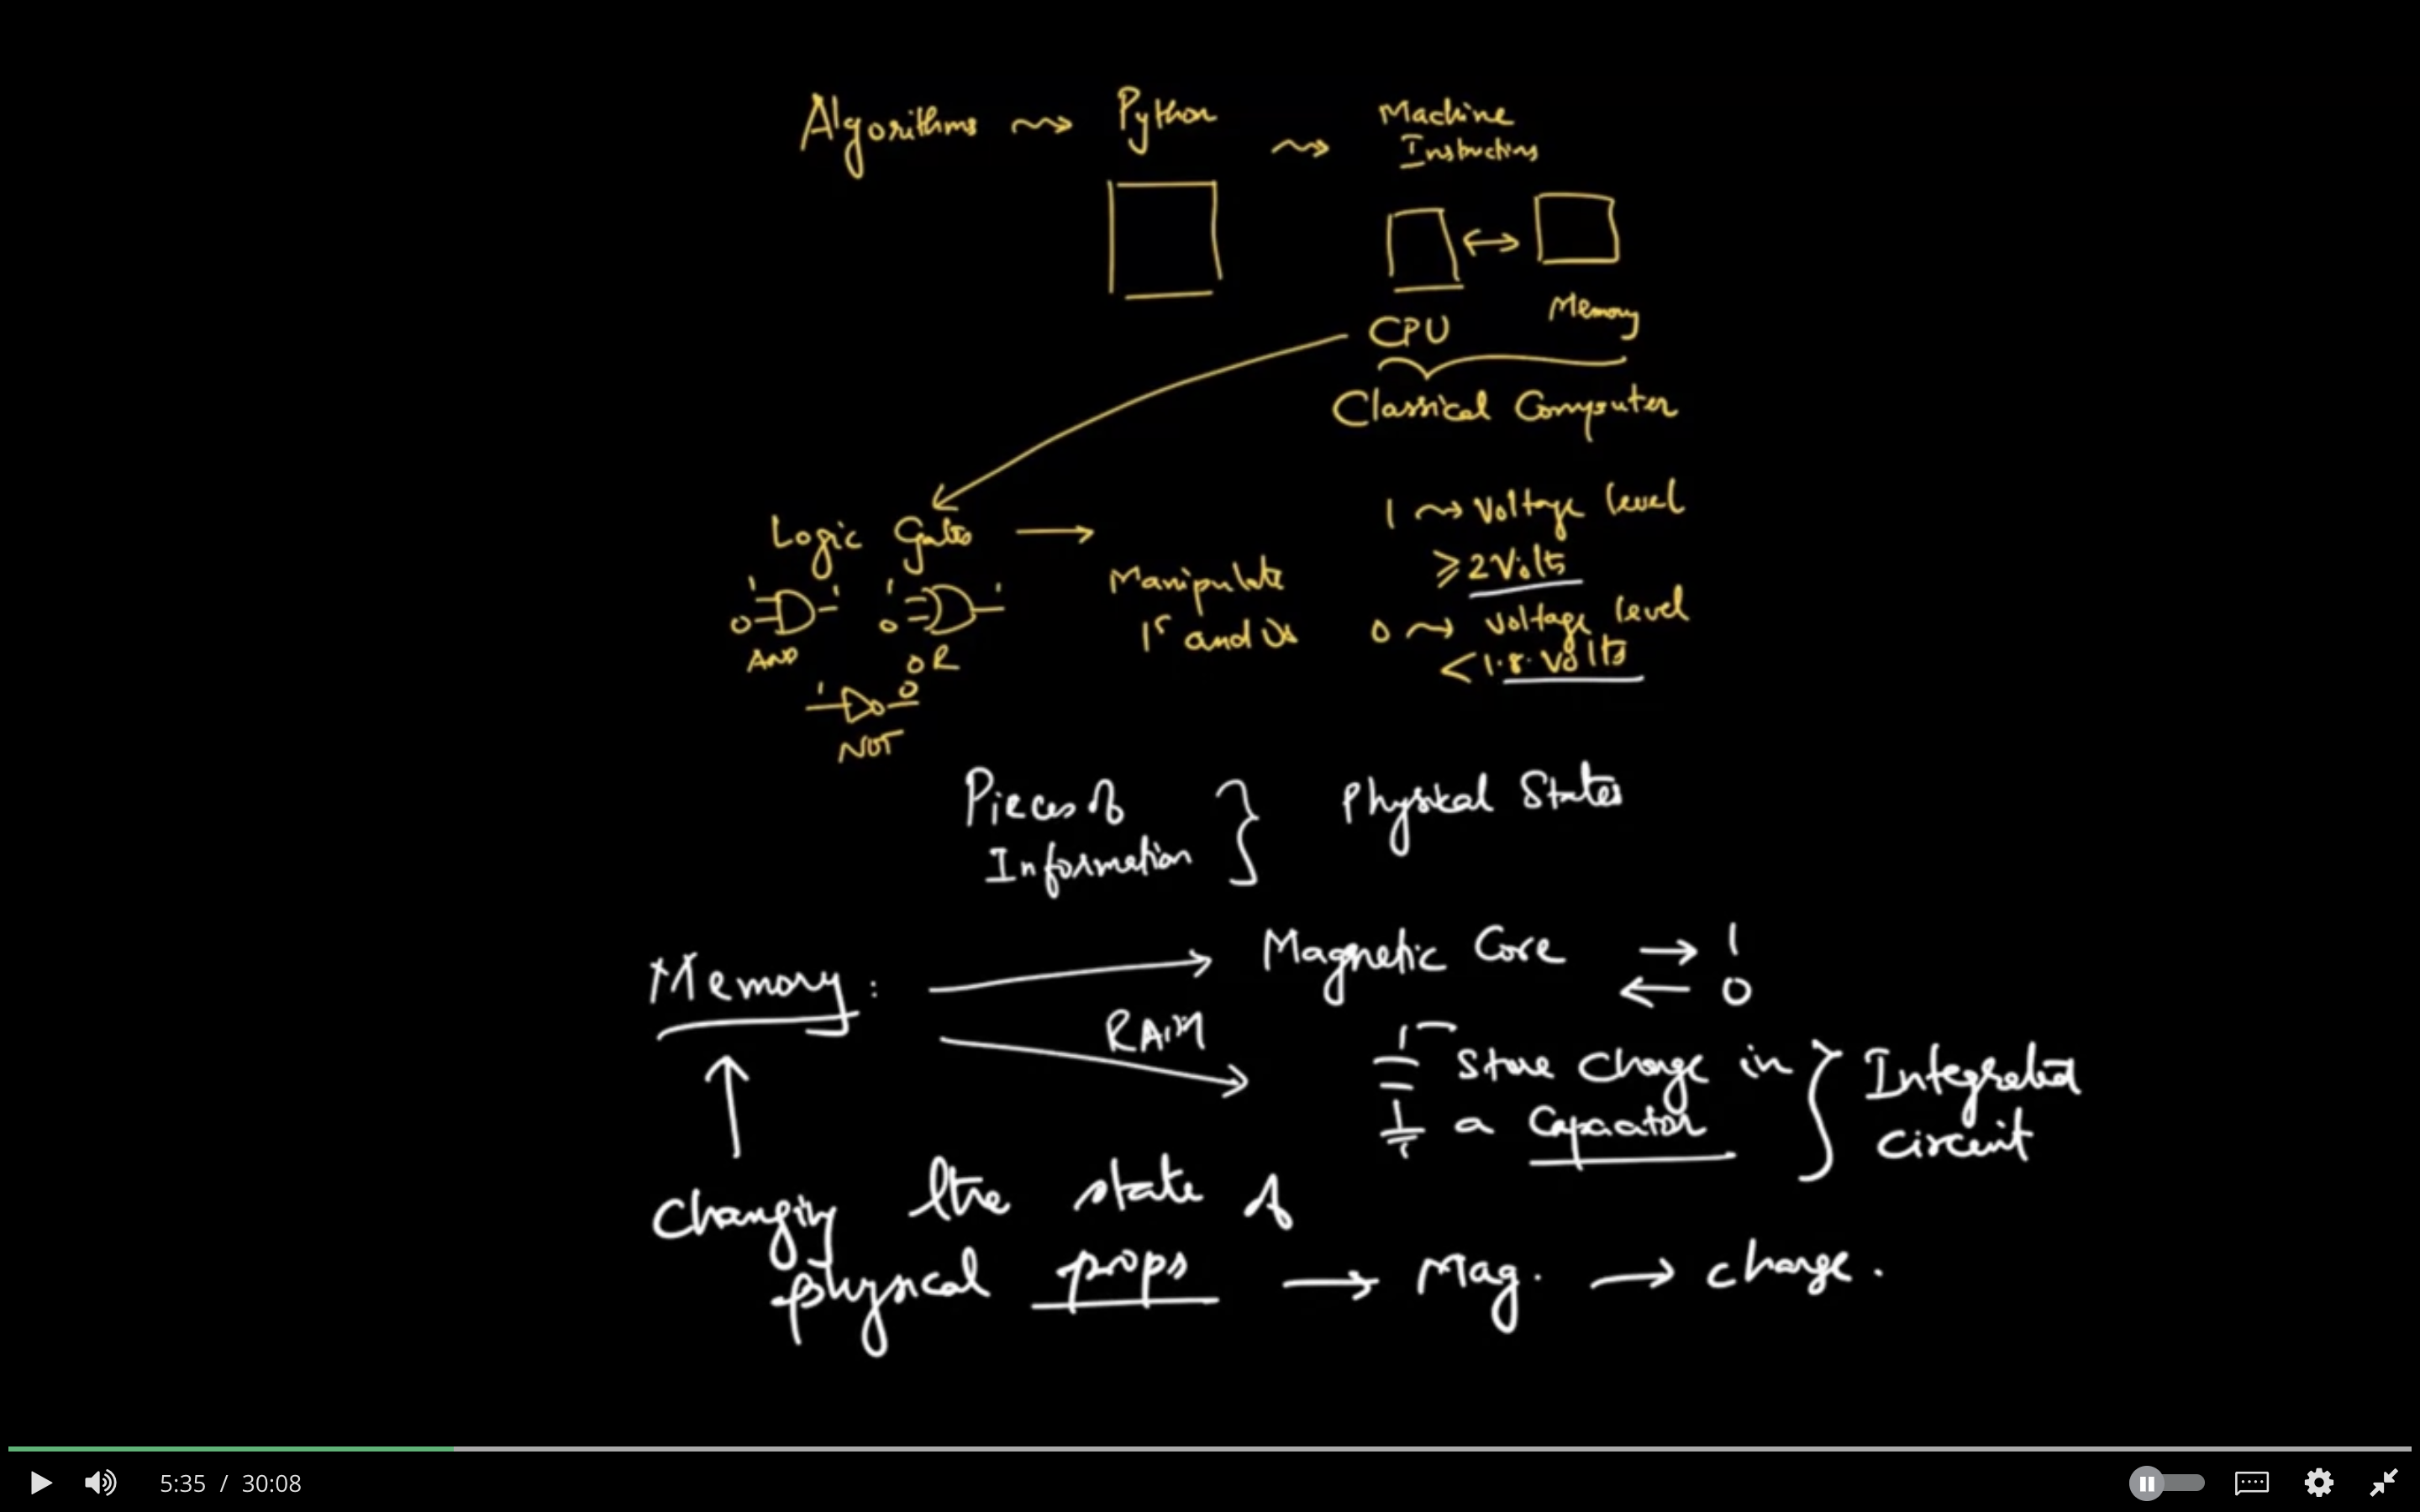 Algorithms ⇝ Python ⇝ Machine
Instructions
CPU ↔ Memory
Classical Computer
Logic Gates →
Manipulate
1s and 0s
1 ⇝ Voltage level
≥ 2 Volts
0 ⇝ voltage level
< 1.8 volts
1
0
1
AND
1
0
1
OR
1
0
NOT
Pieces of
Information } Physical States
Memory: → Magnetic Core → 1
← 0
RAM → Store Charge in
a Capacitor } Integrated
circuit
Changing the state of
physical props → Mag. → charge.
5:35 / 30:08